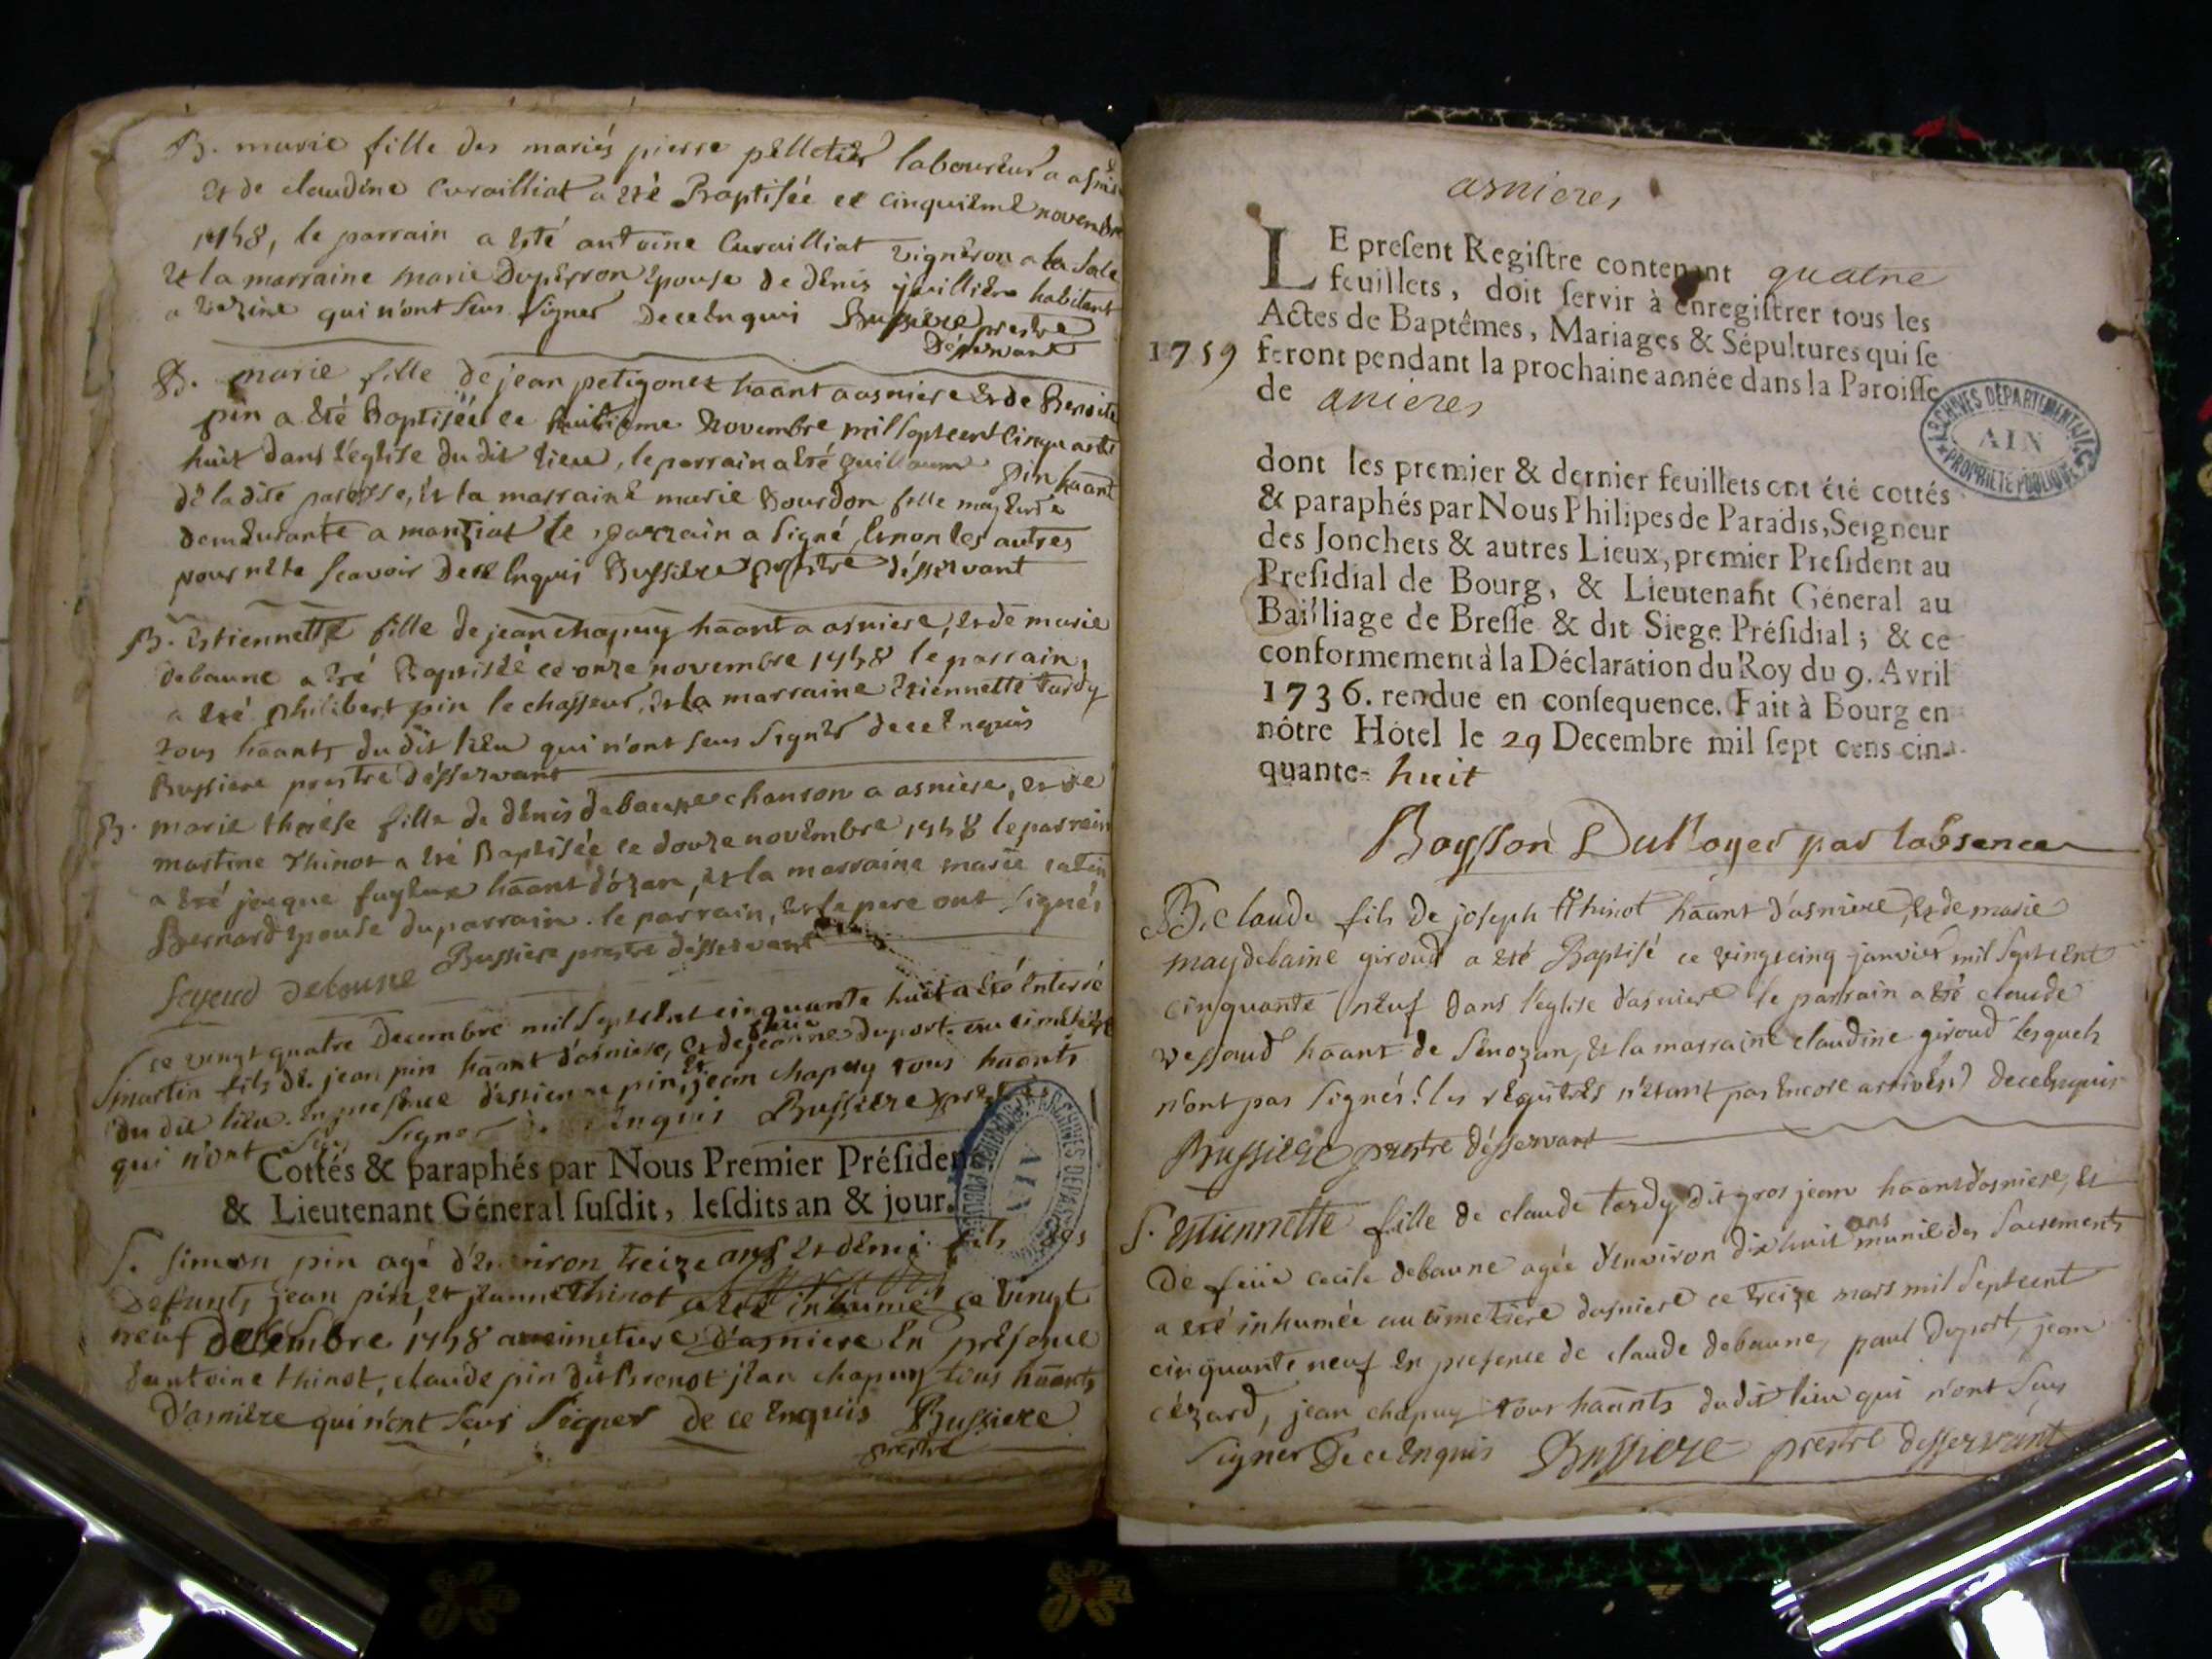 B. marie fille des mariés pierre pelletier laboureur a asnie
et de claudine Curailliat a eté Baptisée ce cinquieme novembre
1758, le parrain a esté antoine Curailliat vigneron a la Sale
et la marraine marie Duperron epouse de denis juilliere habitant
a vezine qui n'ont seus signer De ce Enquis Bussiere prestre
Déservant
B. marie fille de jean petigonet haant a asniere et de Benoite
pin a été Baptisée ce huitieme Novembre mil sept cent cinquante
huit dans l'eglise du dit lieu, le parrain a eté guillaume pin haant
de la dite paroisse, et la marraine marie Bourdon fille majeure
demeurante a manziat le parrain a signé, et non les autres
pour ne le scavoir De ce Enquis Bussiere prestre désservant
B. Estiennette fille de jean chapuy haant a asniere, et de marie
debaune a eté Baptisée ce onze novembre 1758 le parrain,
a eté philibert pin le chasseur, et la marraine Etiennette tardy
tous haants du dit lieu qui n'ont seus signer de ce Enquis
Bussiere prestre désservant
B. marie thérése fille de dénis debaune chanson a asniere, et de
martine Thinot a eté Baptisée ce douze novembre 1758 le parrein
a eté jacque fayeux haant d'ozan, et la marraine marie
Bernard epouse du parrain. le parrain, et le pere ont signés
debaune Bussiere prestre désservant
S ce vingt quatre Decembre mil sept cent cinquante huit a eté Enterré
martin fils de jean pin haant d'asniere, et de feuë jeanne duport au cimetiere
du dit lieu. En presence d'estienne pin, et jean chapuy tous haants
qui n'ont seu signer de ce Enquis Bussiere prestre
Cottés & paraphés par Nous Premier Présiden
& Lieutenant Géneral susdit, lesdits an & jour.
S. simon pin agé d'environ treize ans et demi fils des
Defunts jean pin, et jeanne Thinot a eté inhumé ce vingt
neuf decembre 1758 au cimetiere D'asniere En présence
d'antoine thinot, claude pin dit jean chapuy tous haants
D'asniére qui n'ont seus signer de ce Enquis Bussiere
prestre
asnieres
LE present Registre contenant quatre
feuillets, doit servir à enregistrer tous les
Actes de Baptêmes, Mariages & Sépultures qui se
1759 feront pendant la prochaine année dans la Paroisse
de anieres
ARCHIVES DÉPARTEMENTALES
AIN
PROPRIÉTÉ PUBLIQUE
dont les premier & dernier feuillets ont été cottés
& paraphés par Nous Philipes de Paradis, Seigneur
des Jonchets & autres Lieux, premier President au
Presidial de Bourg, & Lieutenant Géneral au
Bailliage de Bresse & dit Siege Présidial; & ce
conformement à la Déclaration du Roy du 9. Avril
1736. rendue en consequence. Fait à Bourg en
nôtre Hôtel le 29 Decembre mil sept cens cin-
quante- huit
par l'absence
B. Claude fils de joseph Thinot haant d'asniere, et de marie
magdelaine giroud a eté Baptisé ce vingt cinq janvier mil sept cent
cinquante neuf dans l'eglise d'asniere le parrain a eté claude
vessaud haant de Senozan, et la marraine claudine giroud lesquels
n'ont pas signés (les régitres n'etant pas Encore arrivés) de ce Enquis
Bussiere prestre désservant
S. Estiennette fille de claude tardy dit gros jean haant d'asniere, et
De feüe cecile debaune agée d'environ dix huit ans munie des sacrements
a eté inhumée au cimetiére d'asniere ce treize mars mil sept cent
cinquante neuf En presence de claude debaune, paul duport, jean
cézard, jean chapuy tous haants du dit lieu qui n'ont seus
signer De ce Enquis Bussiere prestre desservant